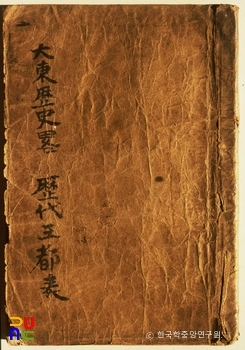 大東歷史畧 歷代王都表
© 한국학중앙연구원